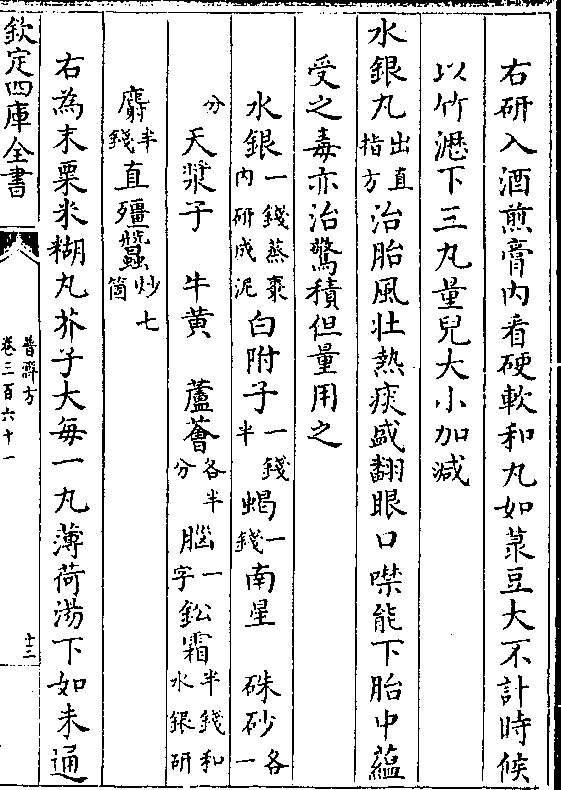 右研入酒煎膏内看硬軟和丸如菉豆大不計時候
以竹瀝下三丸量兒大小加減
水銀丸出直指方治胎風壯熱痰盛翻眼口噤能下胎中蘊
受之毒亦治驚積但量用之
水銀一錢蒸棗内研成泥白附子一錢半蝎一錢南星 硃砂各一
分天漿子 牛黄 蘆薈各半分腦一字鈆霜半錢和水銀研
麝半錢直殭蠶炒七箇
右為末粟米糊丸芥子大每一丸薄荷湯下如未通
欽定四庫全書
普濟方
卷三百六十一
十三